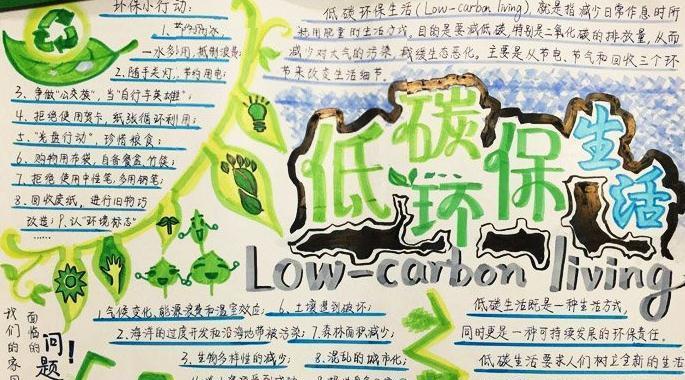 环保小行动:
1.节约用水
一水多用,抵制浪费;
2.随手关灯,节约用电;
3.争做“公交族”,当“自行车英雄”;
4.拒绝使用贺卡,纸张循环利用;
5.“光盘行动”,珍惜粮食;
6.购物用布袋,自备餐盒、竹筷;
7.拒绝使用中性笔,多用钢笔;
8.回收废纸,进行旧物巧
改造;9.认“环境标志”
……
低碳环保生活(Low-carbon living),就是指减少日常作息时所
耗用能量的生活方式,目的是要减低碳,特别是二氧化碳的排放量,从而
减少对大气的污染,减缓生态恶化。主要是从节电、节气和回收三个环
节来改变生活细节。
低碳环保生活
Low-carbon living
我们的家园
面临的
问题!
1.气候变化、能源浪费和温室效应;6.土壤遭到破坏;
2.海洋的过度开发和沿海地带被污染;7.森林面积减少;
3.生物多样性的减少;8.混乱的城市化;
低碳生活既是一种生活方式,
同时更是一种可持续发展的环保责任。
低碳生活要求人们树立全新的生活